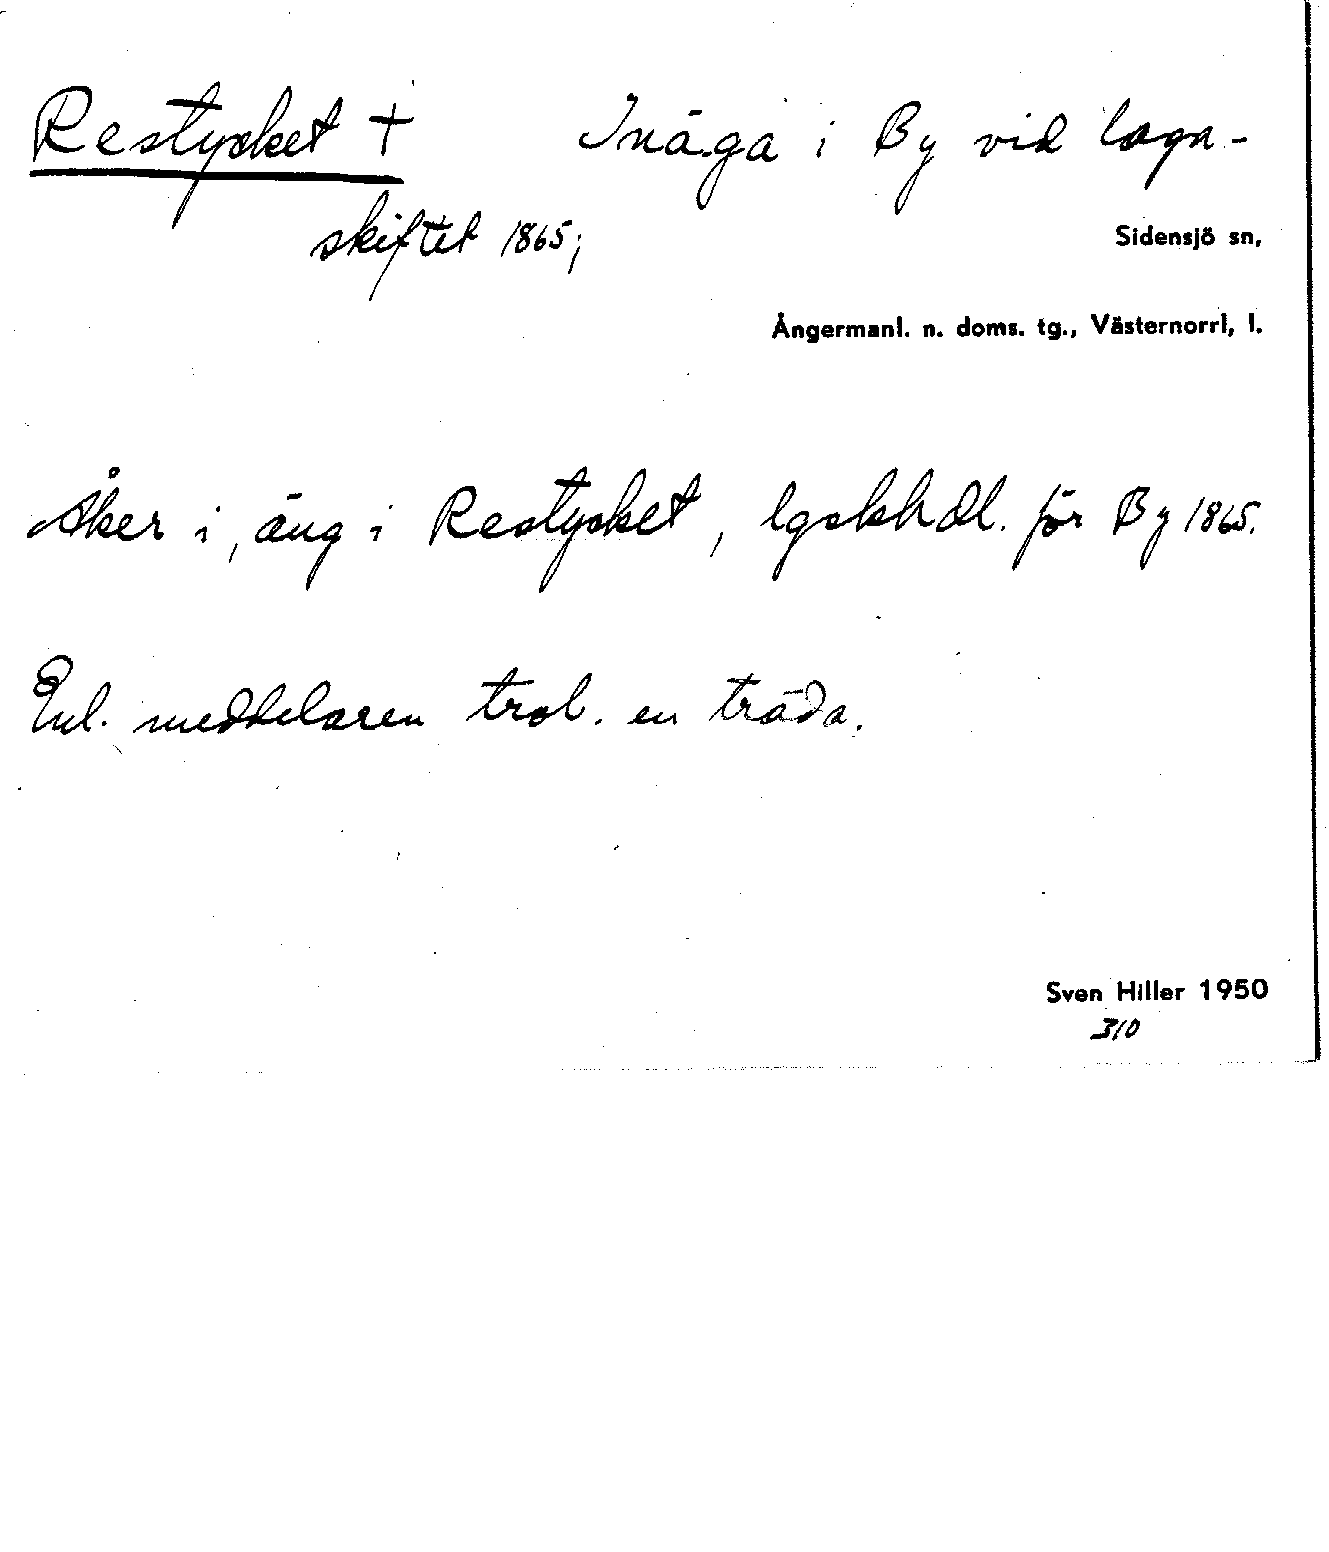 Restycket + Inäga i By vid laga-
skiftet 1865;
Sidensjö sn,
Ångermanl. n. doms. tg., Västernorrl, l.
Åker i, äng i Restycket, lgskhdl. för By 1865.
Enl. meddelaren trol. en träda.
Sven Hiller 1950
310